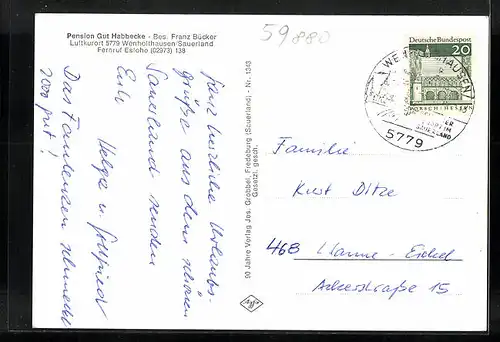 Pension Gut Habbecke - Bes. Franz Bücker
Luftkurort 5779 Wenholthausen/Sauerland
Fernruf Eslohe (02973) 138
59880
Deutsche Bundespost
20
LORSCH/HESSEN
5779
Ganz herzliche Urlaubs-
grüße aus dem schönen
Sauerland senden
Euch
Helga u. Gottfried
Das Faulenzen schmeckt
2000 pert!
90 Jahre Verlag Jos. Grobbel, Fredeburg (Sauerland) - Nr. 1343
Gesetzl. gesch.
Agfa
Familie
Kurt Ditze
468 Wanne-Eickel
Ackerstraße 15